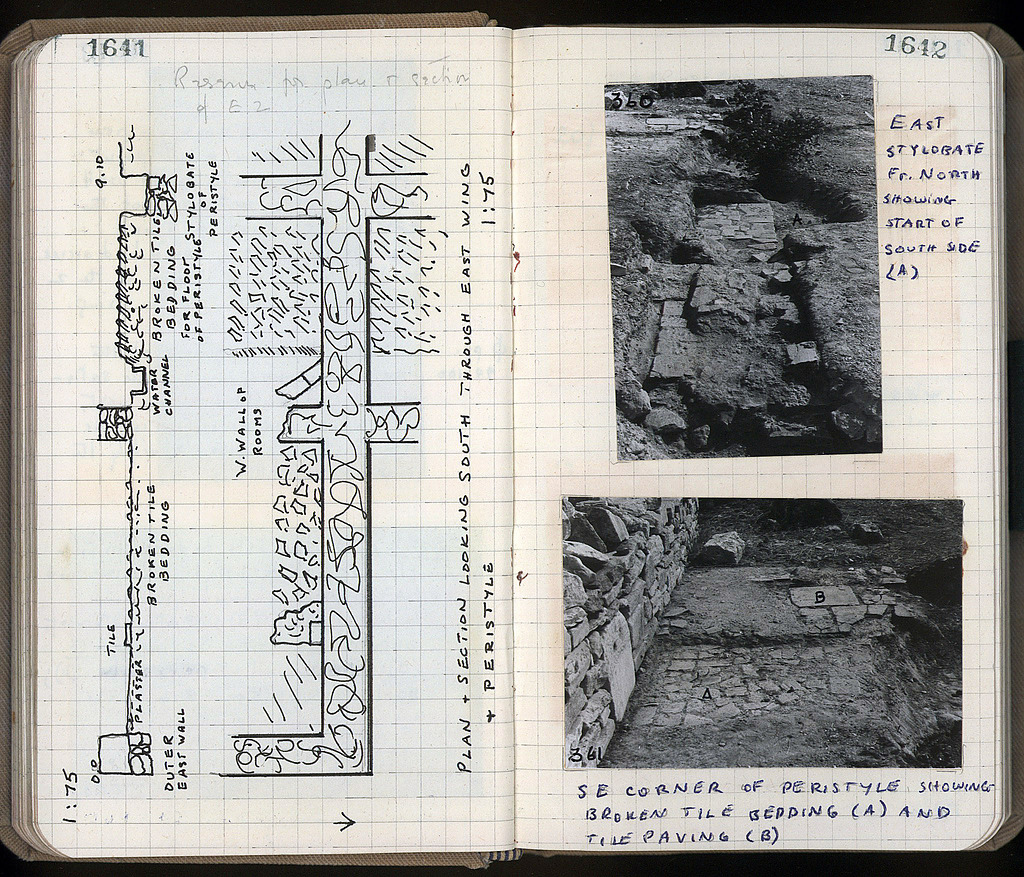 1641
plan & section
of E2
9.10
STYLOBATE
OF
PERISTYLE
BROKEN TILE
BEDDING
FOR FLOOR
OF PERISTYLE
WATER
CHANNEL
W. WALL OF
ROOMS
BROKEN TILE
BEDDING
TILE
PLASTER
OUTER
EAST WALL
1:75
PLAN + SECTION LOOKING SOUTH THROUGH EAST WING
+ PERISTYLE
1:75
1642
360
A
EAST
STYLOBATE
FR. NORTH
SHOWING
START OF
SOUTH SIDE
(A)
B
A
361
SE CORNER OF PERISTYLE SHOWING
BROKEN TILE BEDDING (A) AND
TILE PAVING (B)